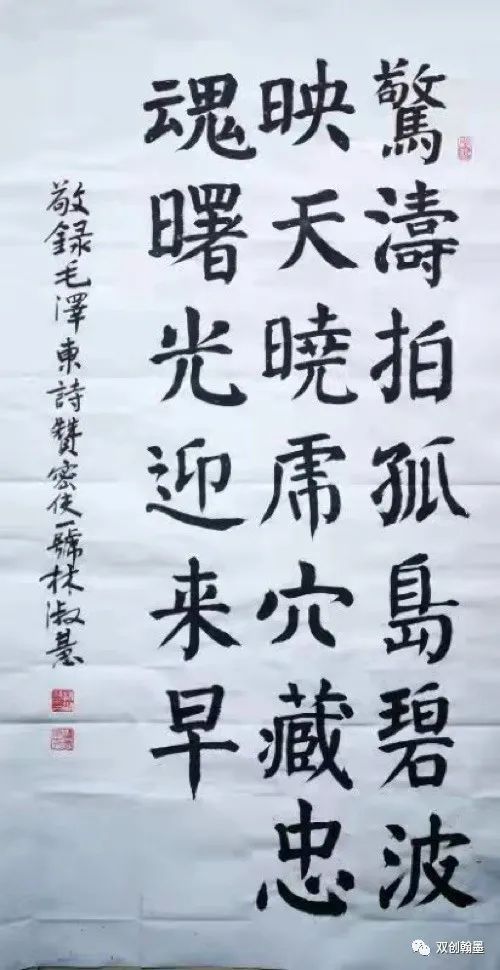 驚濤拍孤島碧波
映天曉虎穴藏忠
魂曙光迎来早
敬録毛澤東詩贊密使一號林淑慧
双创翰墨